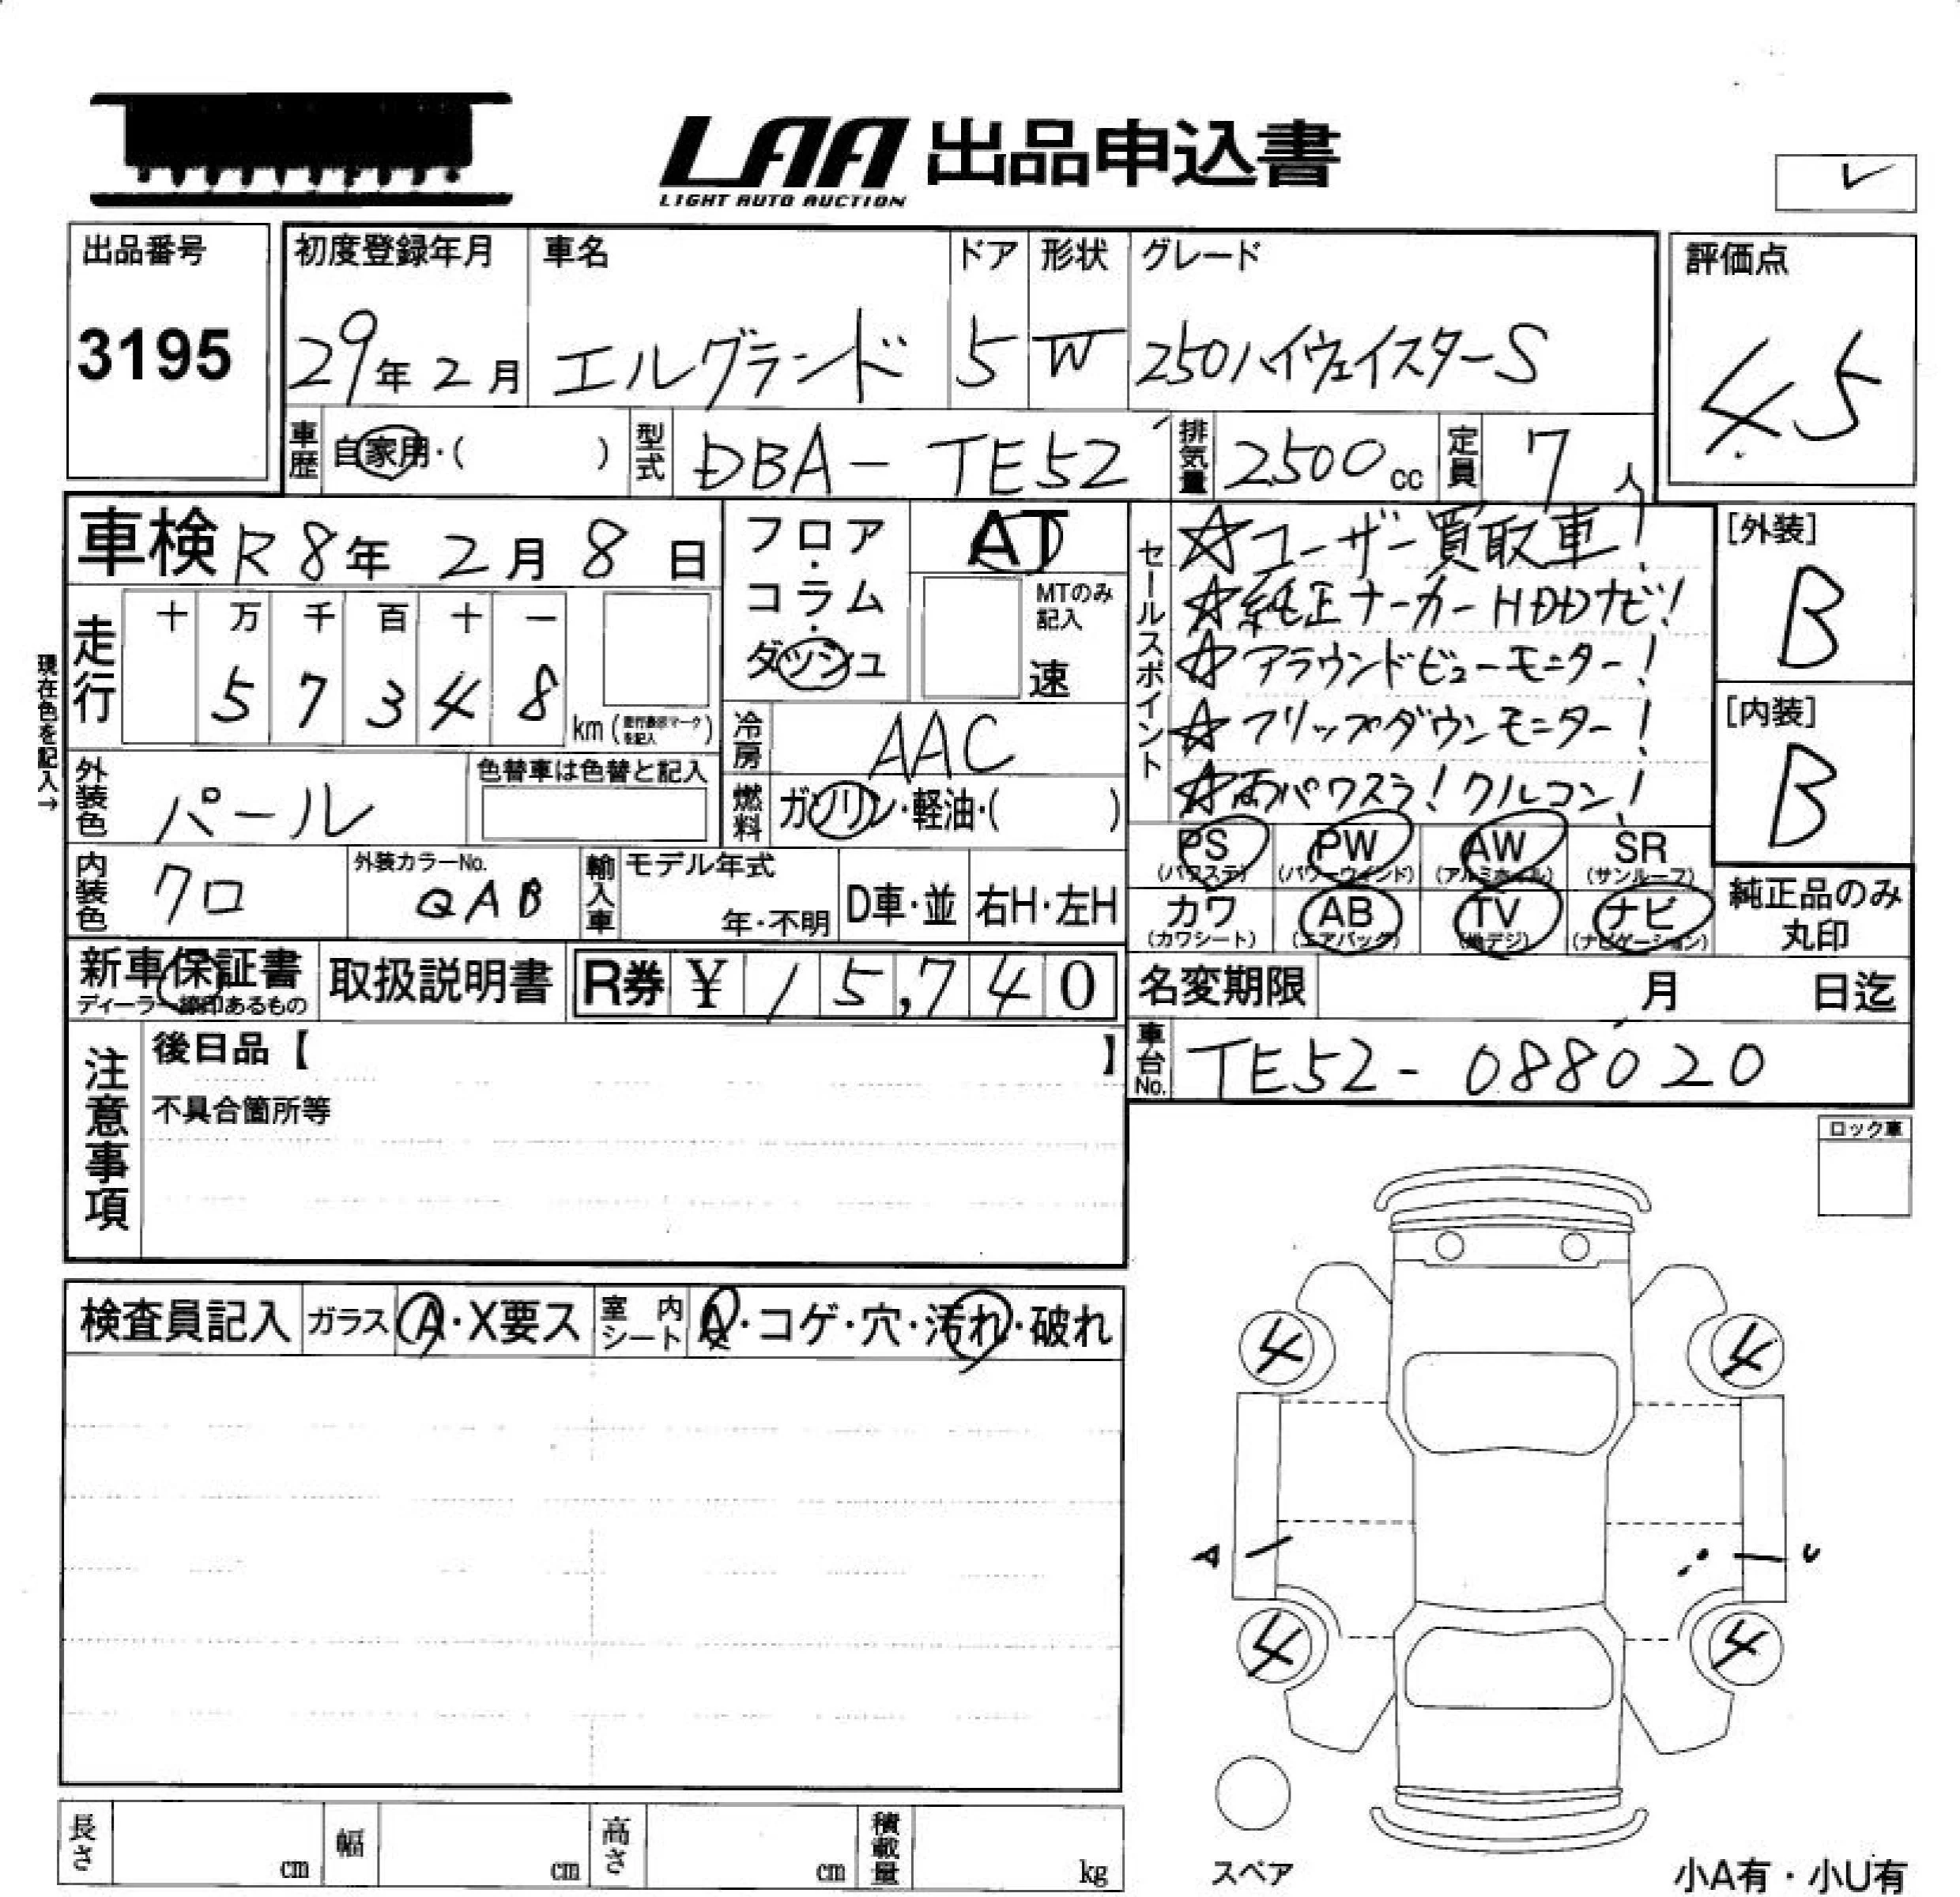 LAA 出品申込書
LIGHT AUTO AUCTION
出品番号
3195
初度登録年月
29年2月
車名
エルグランド
ドア
5
形状
W
グレード
250ハイウェイスターS
評価点
4.5
車歴
自家用・( )
型式
DBA-TE52
排気量
2500cc
定員
7人
車検 R8年2月8日
フロア・コラム・ダッシュ
AT
MTのみ記入
速
セールスポイント
☆ユーザー買取車!
☆純正ナーカーHDDナビ!
☆アラウンドビューモニター!
☆フリップダウンモニター!
☆両パワスラ!クルコン!
[外装]
B
[内装]
B
現在色を記入→
走行
十 万 千 百 十 一
5 7 3 4 8
km (走行表示マークを記入)
冷房
AAC
外装色
パール
色替車は色替と記入
燃料
ガソリン・軽油・( )
内装色
クロ
外装カラーNo.
QAB
輸入車
モデル年式
年・不明
D車・並
右H・左H
PS
(パワステ)
PW
(パワーウィンド)
AW
(アルミホイル)
SR
(サンルーフ)
カワ
(カワシート)
AB
(エアバック)
TV
(地デジ)
ナビ
(ナビゲーション)
純正品のみ
丸印
新車保証書
ディーラー捺印あるもの
取扱説明書
R券 ¥15,740
名変期限 月 日迄
車台No.
TE52-088020
注意事項
後日品【 】
不具合箇所等
ロック車
検査員記入
ガラス
A・X要ス
室内シート
A・コゲ・穴・汚れ・破れ
4
4
A
U
4
4
スペア
小A有・小U有
長さ cm
幅 cm
高さ cm
積載量 kg